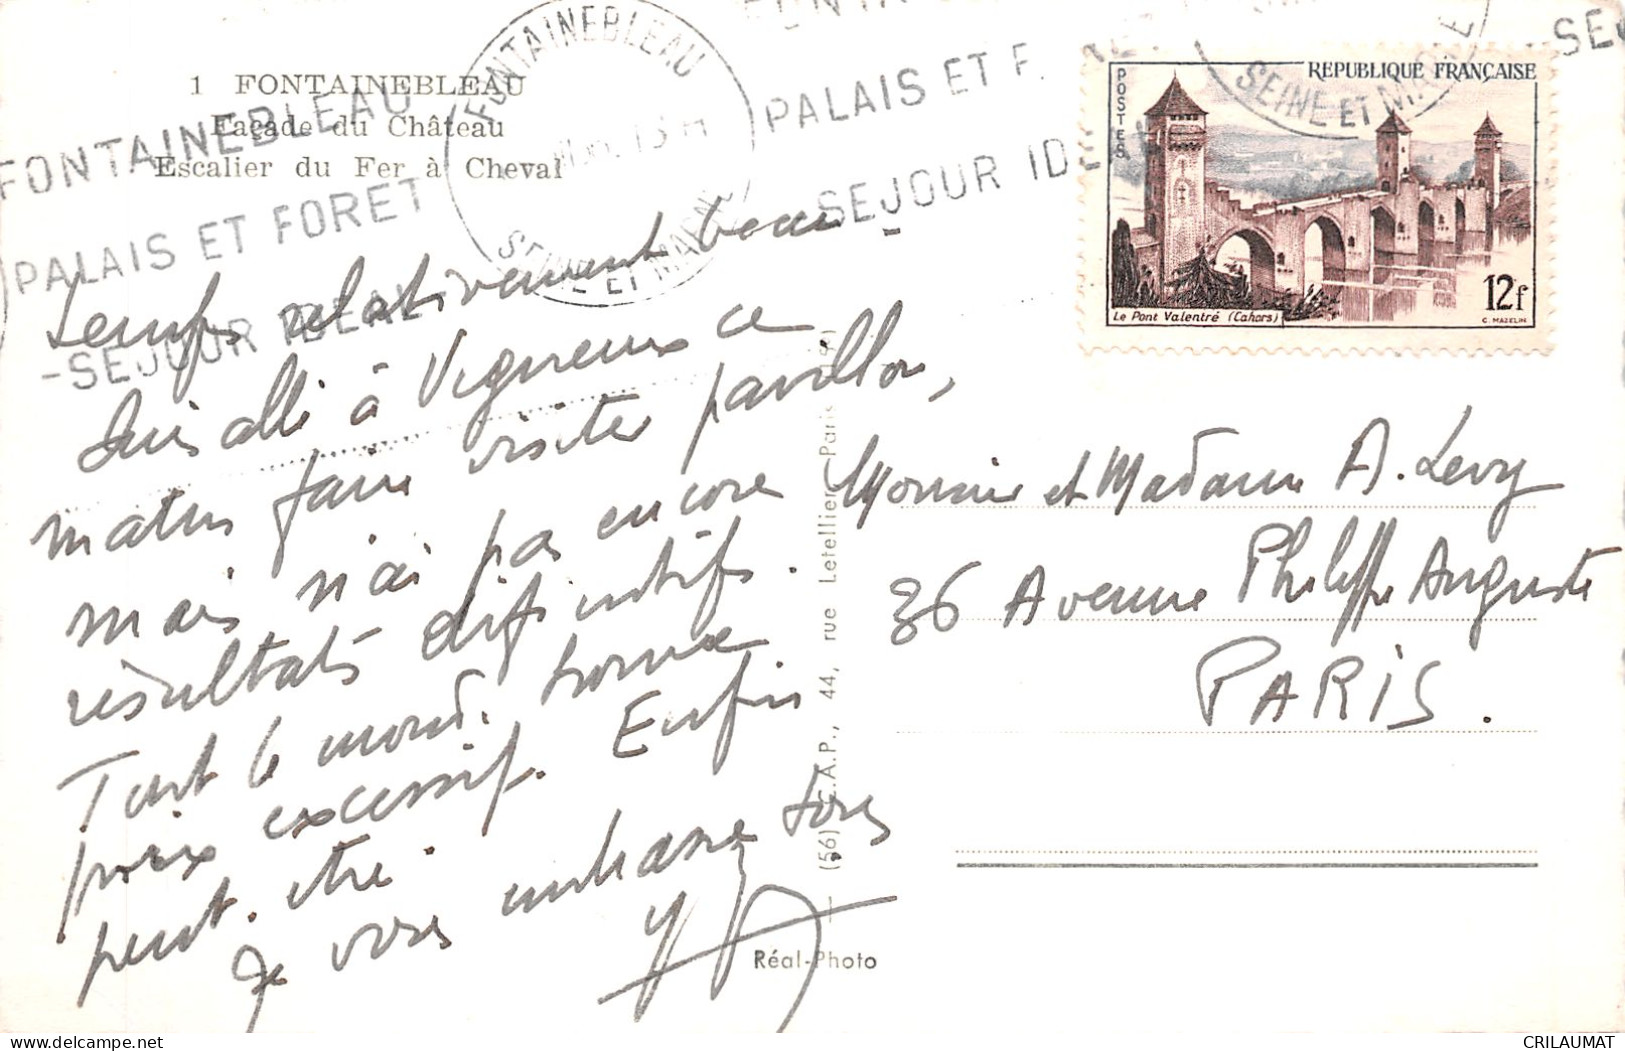 1 FONTAINEBLEAU
Façade du Château
Escalier du Fer à Cheval
FONTAINEBLEAU
PALAIS ET FORET
-SEJOUR IDEAL-
FONTAINEBLEAU
SEINE ET MARNE
PALAIS ET F
-SEJOUR IDE
SEINE ET MARNE
SEJ
POSTES
REPUBLIQUE FRANÇAISE
12f
Le Pont Valentré (Cahors)
C. MAZELIN
Temps relativement beau
Suis allé à Vigneux ce
matin faire visiter pavillon,
mais n'ai pas encore
résultats définitifs.
Tout le monde trouve
prix excessif. Enfin
peut-être
Je vous embrasse tous
Monsieur et Madame A. Levy
36 Avenue Philippe Auguste
PARIS.
(56) C.A.P., 44, rue Letellier, Paris
Réal-Photo
CRILAUMAT